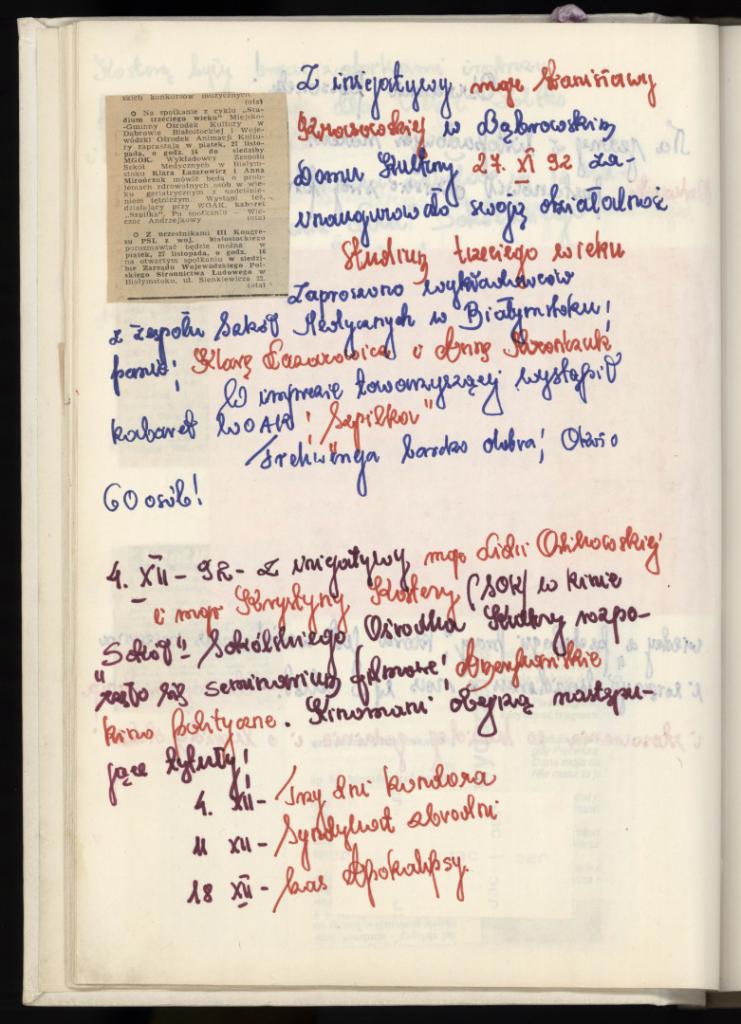 skich konkursów muzycznych.
(ota)
O Na spotkanie z cyklu „Stu-
dium trzeciego wieku" Miejsko-
-Gminny Ośrodek Kultury w
Dąbrowie Białostockiej i Woje-
wódzki Ośrodek Animacji Kultu-
ry zapraszają w piątek, 27 listo-
pada, o godz. 14 do siedziby
MGOK. Wykładowcy Zespołu
Szkół Medycznych w Białym-
stoku Klara Łazarowicz i Anna
Mirończuk mówić będą o pro-
blemach zdrowotnych osób w wie-
ku geriatrycznym z nadciśnie-
niem tętniczym. Wystąpi też,
działający przy WOAK, kabaret
„Szpilka". Po spotkaniu — Wie-
czór Andrzejkowy.
(ota)
O Z uczestnikami III Kongre-
su PSL z woj. białostockiego
porozmawiać będzie można w
piątek, 27 listopada, o godz. 16
na otwartym spotkaniu w siedzi-
bie Zarządu Wojewódzkiego Pol-
skiego Stronnictwa Ludowego w
Białymstoku, ul. Sienkiewicza 22.
(ota)
Z inicjatywy mgr Stanisławy
w Dąbrowskim
Domu Kultury 27. XI 92 za-
inaugurowało swoją działalność
Studium trzeciego wieku
Zaproszono wykładowców
z Zespołu Szkół Medycznych w Białymstoku;
panie: Klarę Łazarowicz i Annę Mirończuk
W imprezie towarzyszącej wystąpił
kabaret WOAK „Szpilka"
Frekwencja bardzo dobra; Około
60 osób!
4. XII - 92 - Z inicjatywy mgr Lidii
i mgr Krystyny Kostery (SOK) w kinie
"Sokół" Sokólskiego Ośrodka Kultury rozpo-
częło się seminarium filmowe:
kino polityczne. Kinomani obejrzą następu-
jące tytuły:
4. XII - Trzy dni kondora
11 XII - Syndykat zbrodni
18 XII - Czas Apokalipsy.